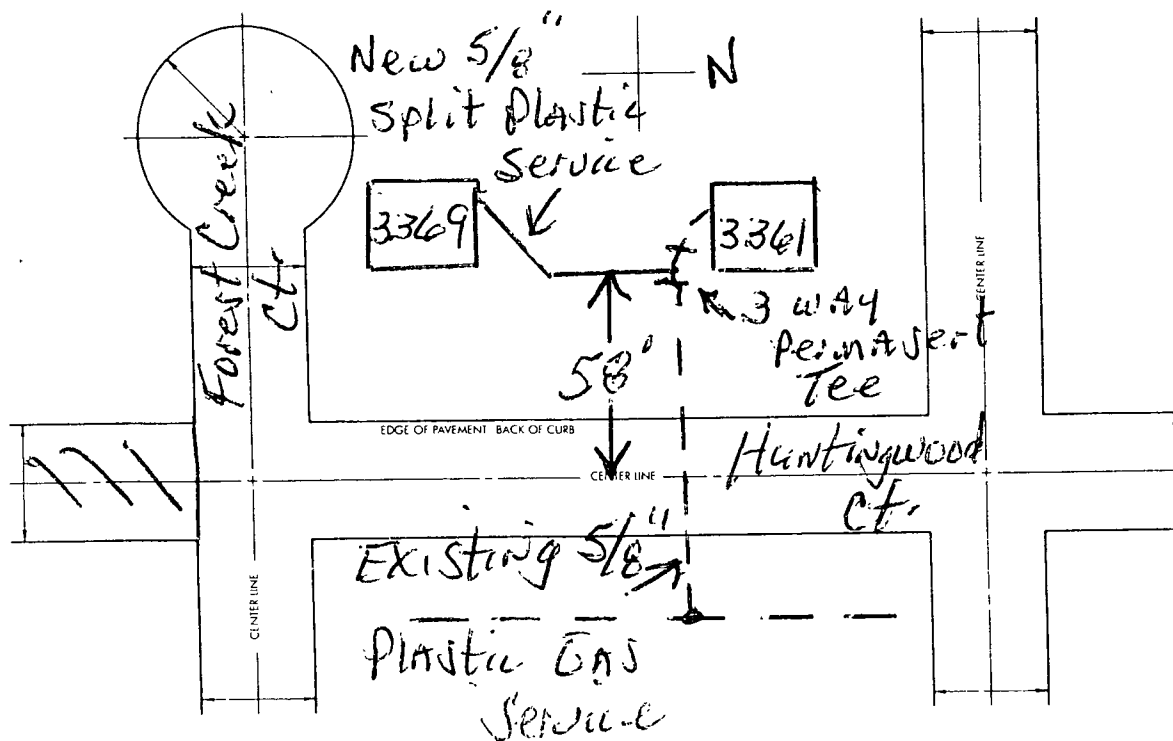 New 5/8"
Split Plastic
Service
N
Forest Creek
Ct.
3369
3361
3 way
Permasert
Tee
58'
EDGE OF PAVEMENT BACK OF CURB
CENTER LINE
CENTER LINE
Huntingwood
Ct.
Existing 5/8"
CENTER LINE
Plastic Gas
Service